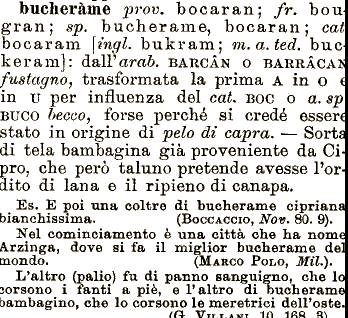 bucheràme prov. bocaran; fr. bou-
gran; sp. bucherame, bocaran; cat
bocaram [ingl. bukram; m. a. ted. buc-
keram]: dall'arab. BARCÂN o BARRÂCAN
fustagno, trasformata la prima A in O e
in U per influenza del cat. BOC o a. sp
BUCO becco, forse perché si credé essere
stato in origine di pelo di capra. — Sorta
di tela bambagina già proveniente da Ci-
pro, che però taluno pretende avesse l'or-
dito di lana e il ripieno di canapa.
Es. E poi una coltre di bucherame cipriana
bianchissima. (BOCCACCIO, Nov. 80. 9).
Nel cominciamento è una città che ha nome
Arzinga, dove si fa il miglior bucherame del
mondo. (MARCO POLO, Mil.).
L'altro (palio) fu di panno sanguigno, che lo
corsono i fanti a piè, e l'altro di bucherame
bambagino, che lo corsono le meretrici dell'oste.
(G. VILLANI, 10. 168. 3)